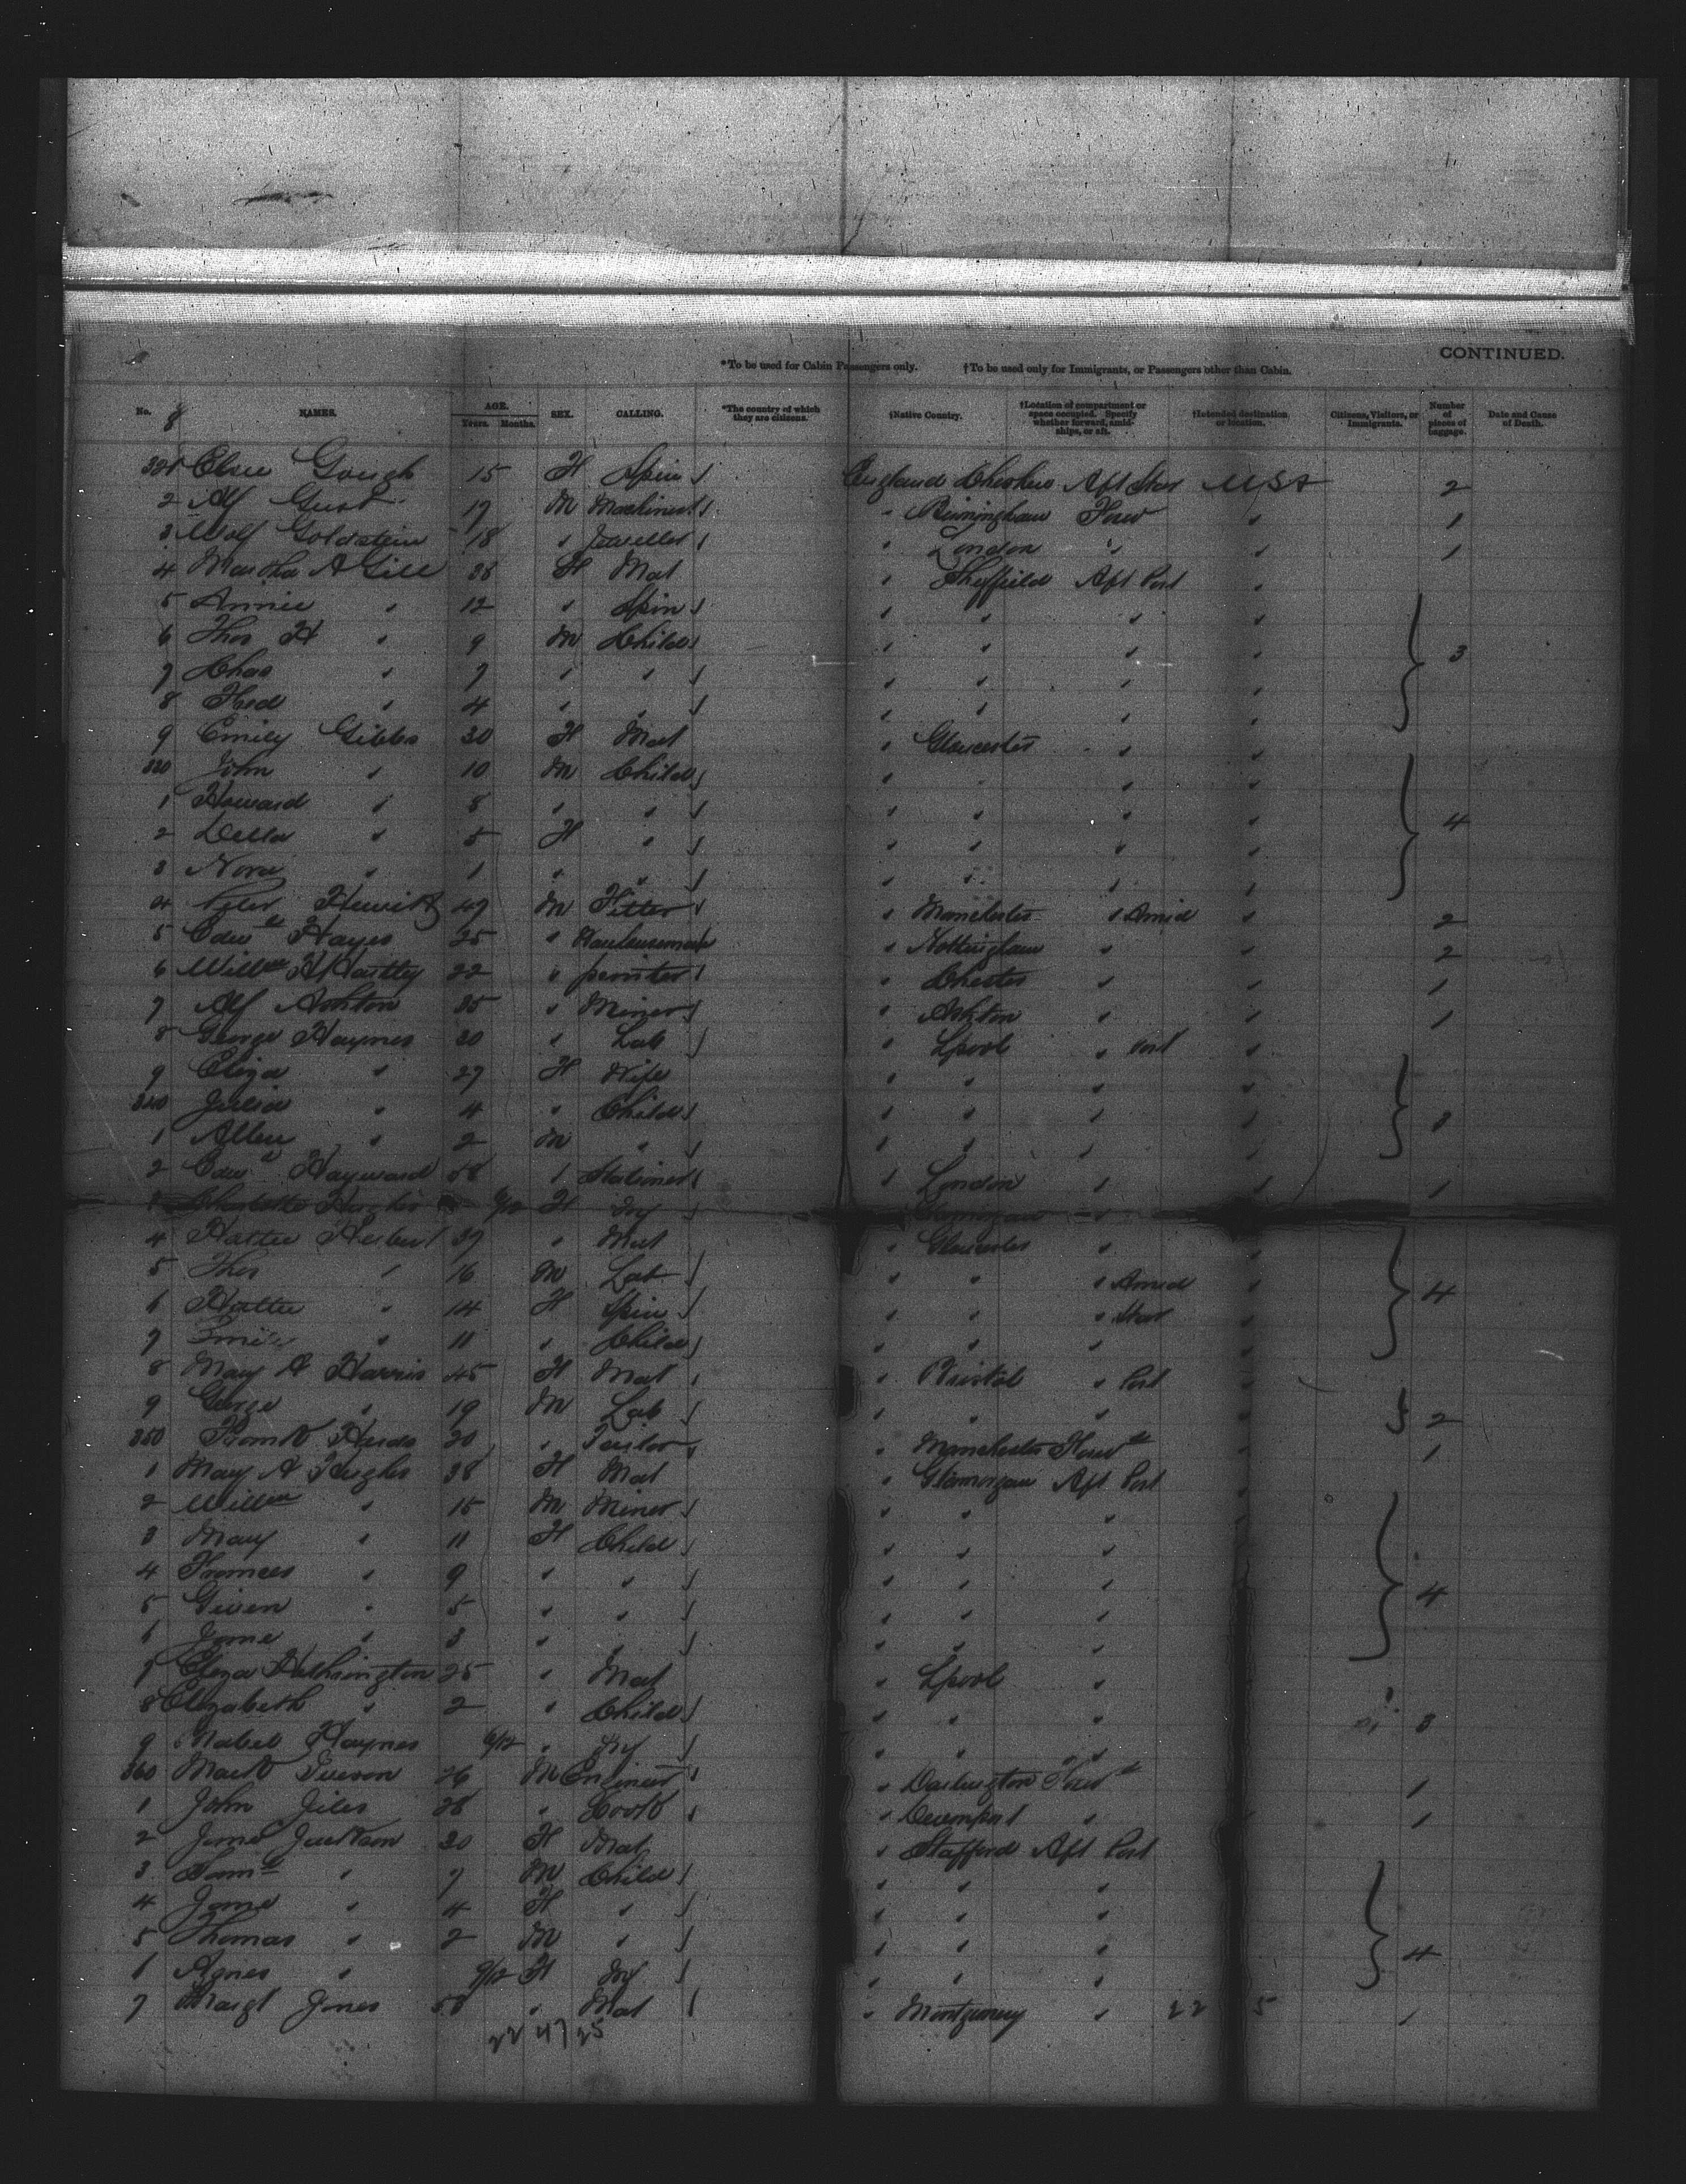 CONTINUED.
*To be used for Cabin Passengers only. †To be used only for Immigrants, or Passengers other than Cabin.
No. NAMES. AGE. Years. Months. SEX. CALLING. *The country of which they are citizens. †Native Country. †Location of compartment or space occupied. Specify whether forward, amidships, or aft. †Intended destination or location. Citizens, Visitors, or Immigrants. Number of pieces of baggage. Date and Cause of Death.
8
321 Gough 15 F Spin England Cheshire Aft Star USA 2
2 Alf Gust 19 M Machinest " Birmingham Forw " 1
3 Wolf Goldstein 18 " Jeweller " London " " 1
4 Martha A Gill 38 F Mat " Sheffield Aft Port "
5 Annie " 12 " Spin " " " "
6 Thos H " 9 M Child " " " " 3
7 Chas " 7 " " " " " "
8 Fred " 4 " " " " " "
9 Emily Gibbs 30 F Mat " Gloucester " "
330 John " 10 M Child " " " "
1 Howard " 8 " " " " " " 4
2 Della " 5 F " " " " "
3 Nora " 1 " " " " " "
4 Peter Hewitt 47 M Fitter " Manchester " Amid " 2
5 Edwd Hayes 25 " Warehouseman " Nottingham " " 2
6 Willm H Hartley 22 " " Chester " " 1
7 Alf Ashton 35 " Miner " Ashton " " 1
8 George Haynes 30 " Lab " Lpool " Port "
9 Eliza " 27 F Wife " " " "
340 Julia " 4 " Child " " " " 3
1 Allen " 2 M " " " " "
2 Edwd Hayward 58 " Stationer " London " " 1
Charlotte Hughes F Inf " Glamorgan "
4 Hattie Herbert 37 " Mat " Gloucester " "
5 Thos " 16 M Lab " " " Amid "
6 Hattie " 14 F Spin " " " Star " 4
7 Emily " 11 " Child " " " "
8 Mary A Harris 45 F Mat " Bristol " Port "
9 George " 19 M Lab " " " 2
350 Frank 20 " Tailor " Manchester Forwd " 1
1 Mary A Hughes 38 F Mat " Glamorgan Aft Port
2 Willm " 15 M Miner " " "
3 Mary " 11 F Child " " "
4 Frances " 9 " " " " " 4
5 Gwen " 5 " " " " "
6 Jane " 3 " " " "
7 Eliza 25 " Mat " Lpool "
8 Elizabeth " 2 " Child " " " 3
9 Mabel Haynes 6/12 " Inf " " "
360 Mark 26 M Engineer " Darlington Forwd 1
1 John Jiles 28 " Cook " Devonport " 1
2 Jane Jackson 30 F Mat " Stafford Aft Port
3 Saml " 7 M Child " " "
4 Jane " 4 F " " " "
5 Thomas " 2 M " " " " 4
6 Agnes " 9/12 F Inf " " "
7 Margt Jones 50 " Mat " Montgomery " 22 5 1
22 47 25